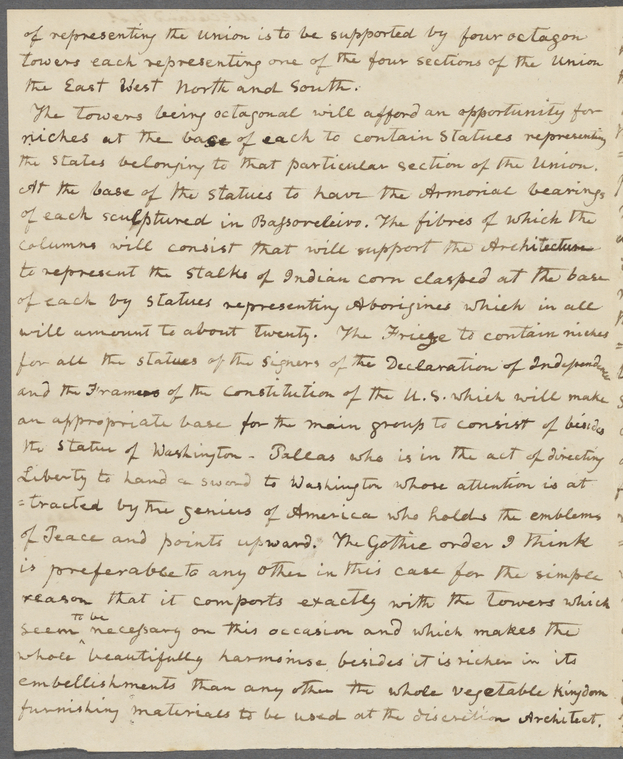 of representing the Union is to be supported by four octagon
towers each representing one of the four sections of the Union
the East West North and South.
The towers being octagonal will afford an opportunity for
niches at the base of each to contain Statues representing
the States belonging to that particular section of the Union.
At the base of the statues to have the Armorial bearings
of each sculptured in Bassoreleivo. The fibres of which the
columns will consist that will support the Architecture
to represent the stalks of Indian corn clasped at the base
of each by statues representing Aborigines which in all
will amount to about twenty. The Frieze to contain niches
for all the statues of the signers of the Declaration of Independence
and the Framers of the Constitution of the U.S. which will make
an appropriate base for the main group to consist of besides
the statue of Washington - Pallas who is in the act of directing
Liberty to hand a sword to Washington whose attention is at
=tracted by the genius of America who holds the emblems
of Peace and points upward. The Gothic order I think
is preferable to any other in this case for the simple
reason that it comports exactly with the towers which
seem to be necessary on this occasion and which makes the
whole beautifully harmonise besides it is richer in its
embellishments than any other the whole vegetable kingdom
furnishing materials to be used at the discretion Architect.